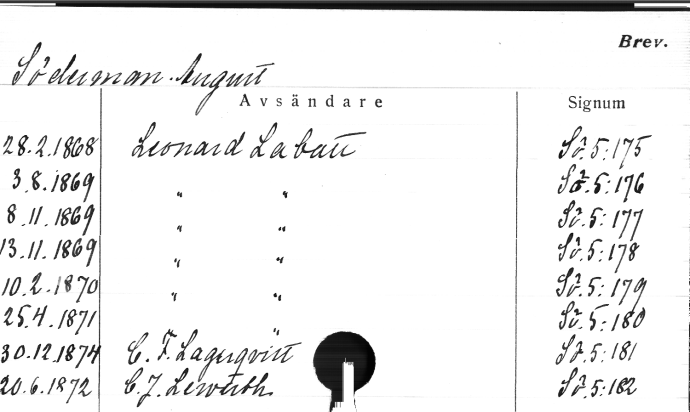 Brev.
Söderman. August
Avsändare Signum
28.2.1868 Leonard Labatt Sö.5:175
3.8.1869 " " Sö.5:176
8.11.1869 " " Sö.5:177
13.11.1869 " " Sö.5:178
10.2.1870 " " Sö.5:179
25.4.1871 " Sö.5:180
30.12.1874 C. F. Lagerqvist Sö.5:181
20.6.1872 C. J. Sö.5:182